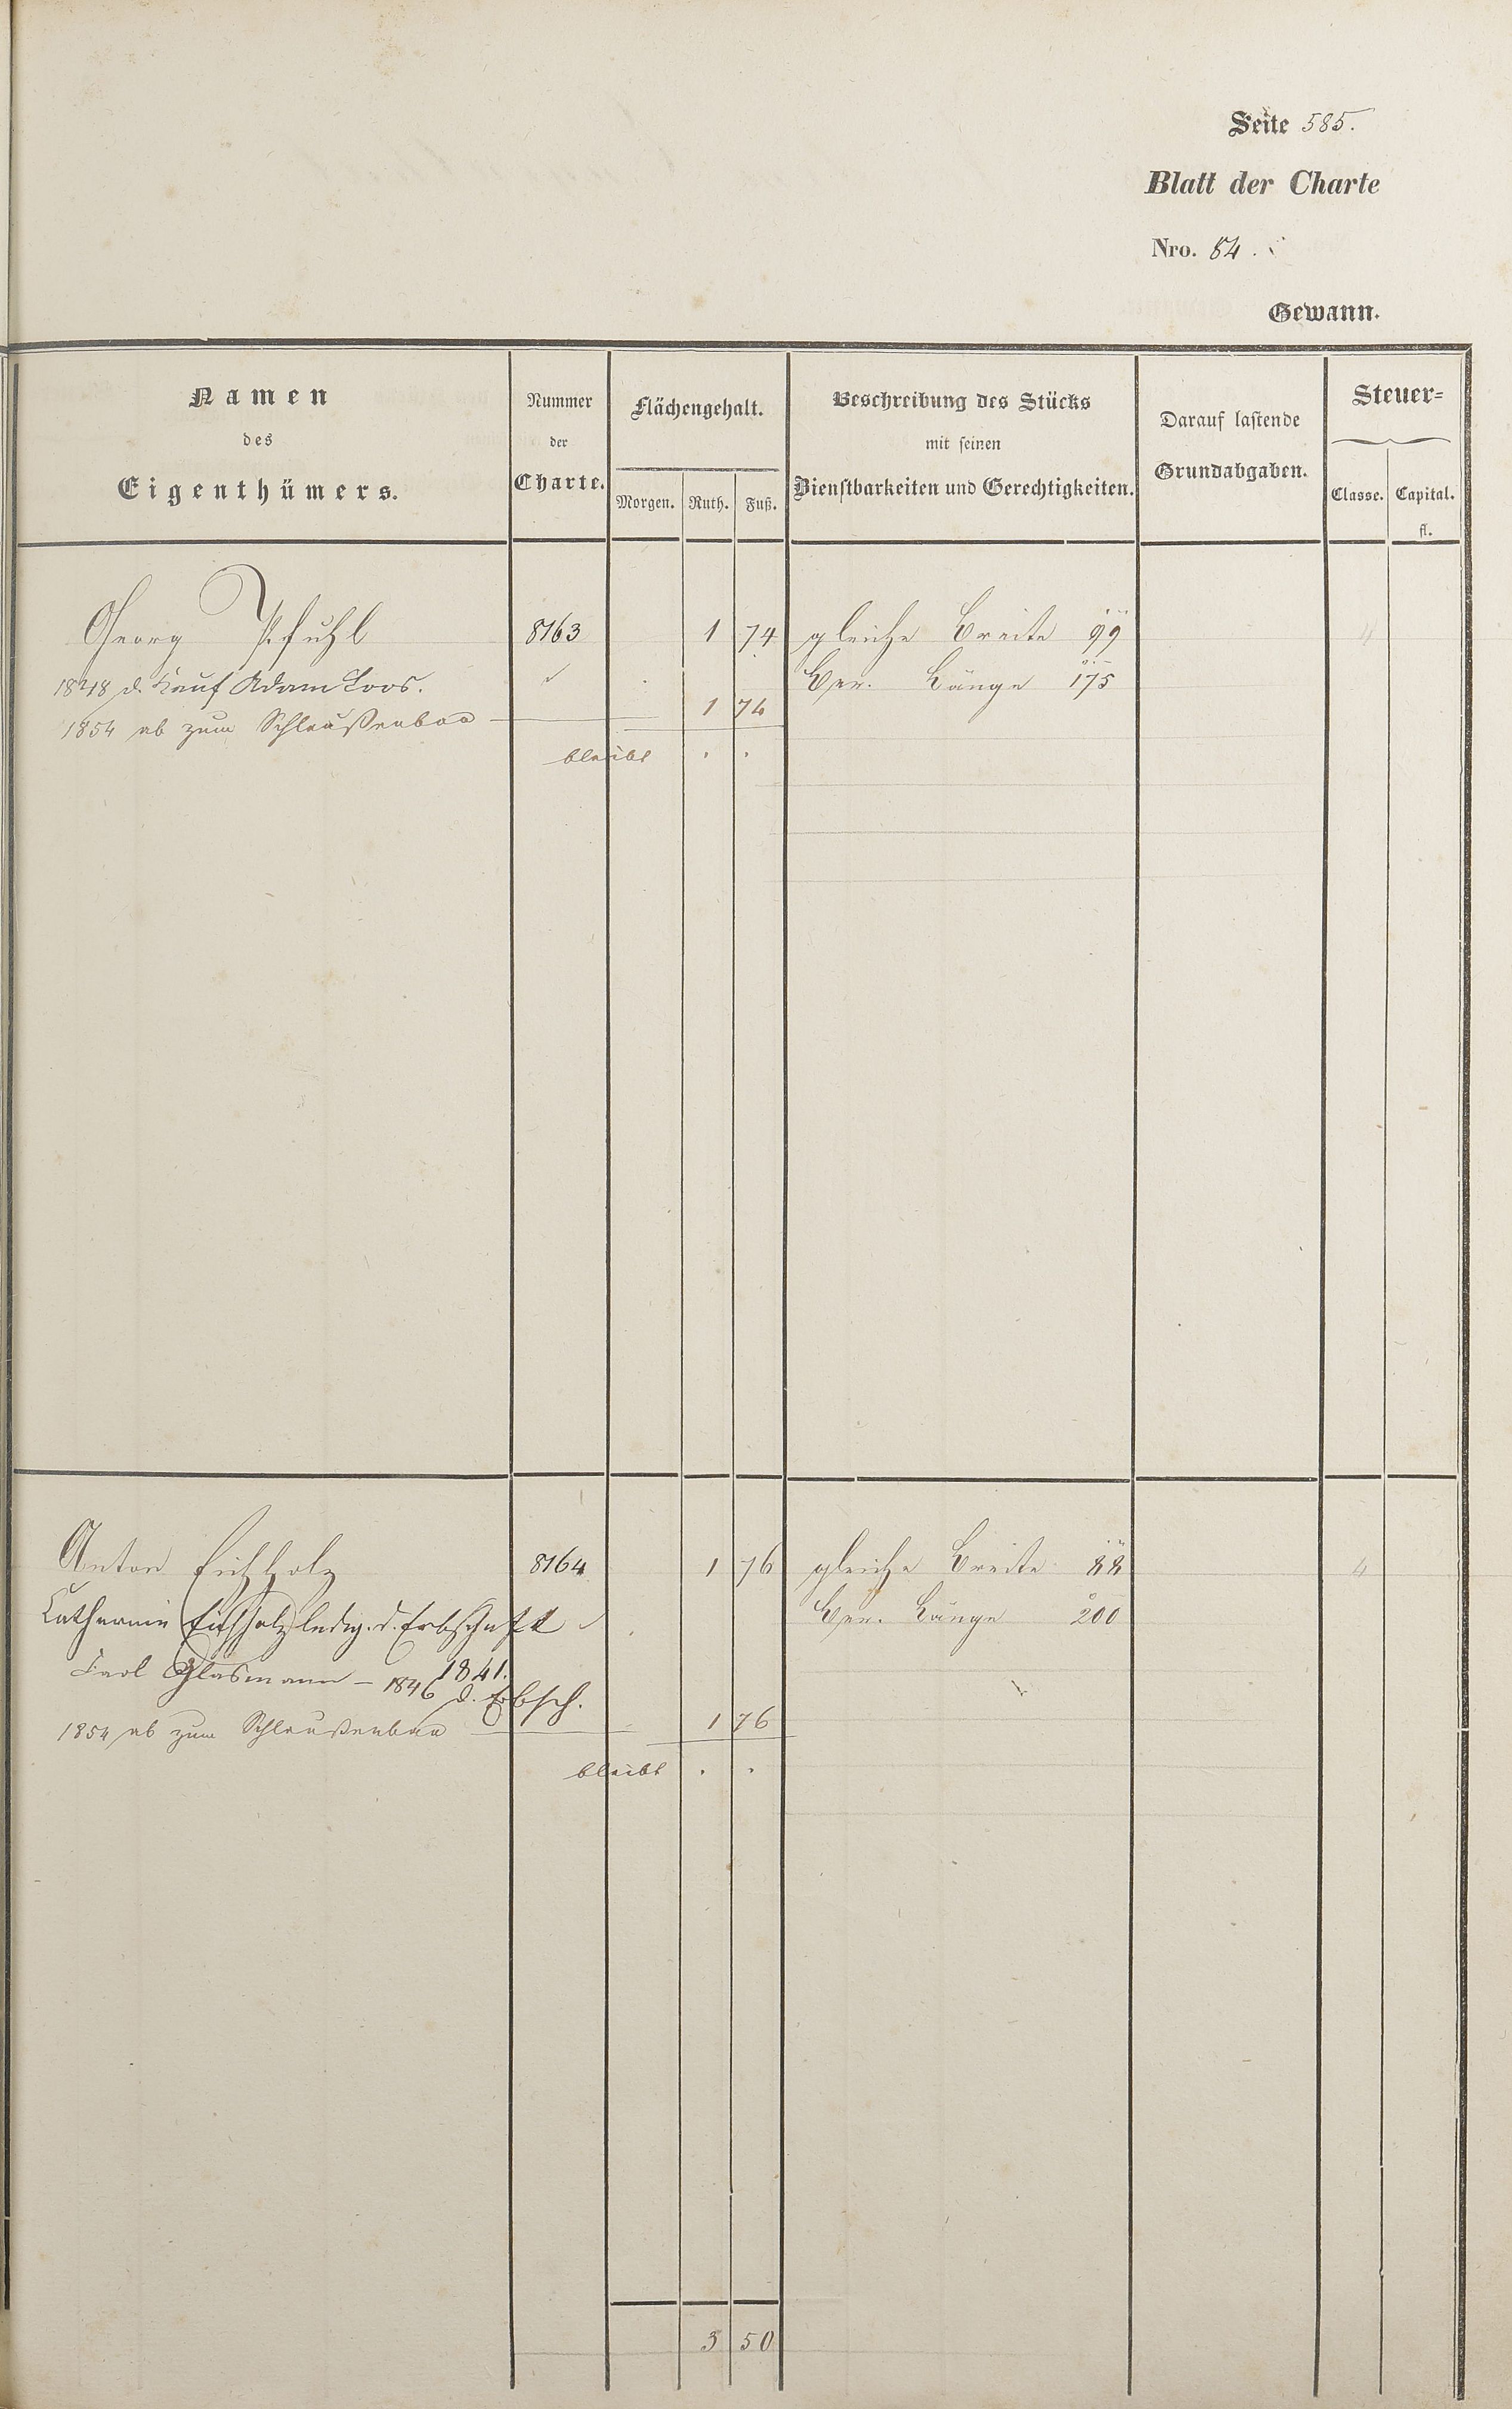 Seite 585.
Blatt der Charte
Nro. 84.
Gewann.
Namen
des
Eigenthümers.
Nummer
der
Charte.
Flächengehalt.
Morgen. Ruth. Fuß.
Beschreibung des Stücks
mit seinen
Dienstbarkeiten und Gerechtigkeiten.
Darauf lastende
Grundabgaben.
Steuer=
Classe. Capital.
fl.
Georg Pfuhl 8163 1 74 gleiche Breite 99
1848 d. Kauf Adam Loos. Ger. Länge 175
1854 ab zum Schleußenbau — 1 74
bleibt . .
Anton Eichholz 8164 1 76 gleiche Breite 88 4
Catharina Eichholz ledig. d. Erbschaft Ger. Länge 200
1841.
Carl Glasmann – 1846 d. Erbsch.
1854 ab zum Schleußenbau — 1 76
bleibt . .
3 50